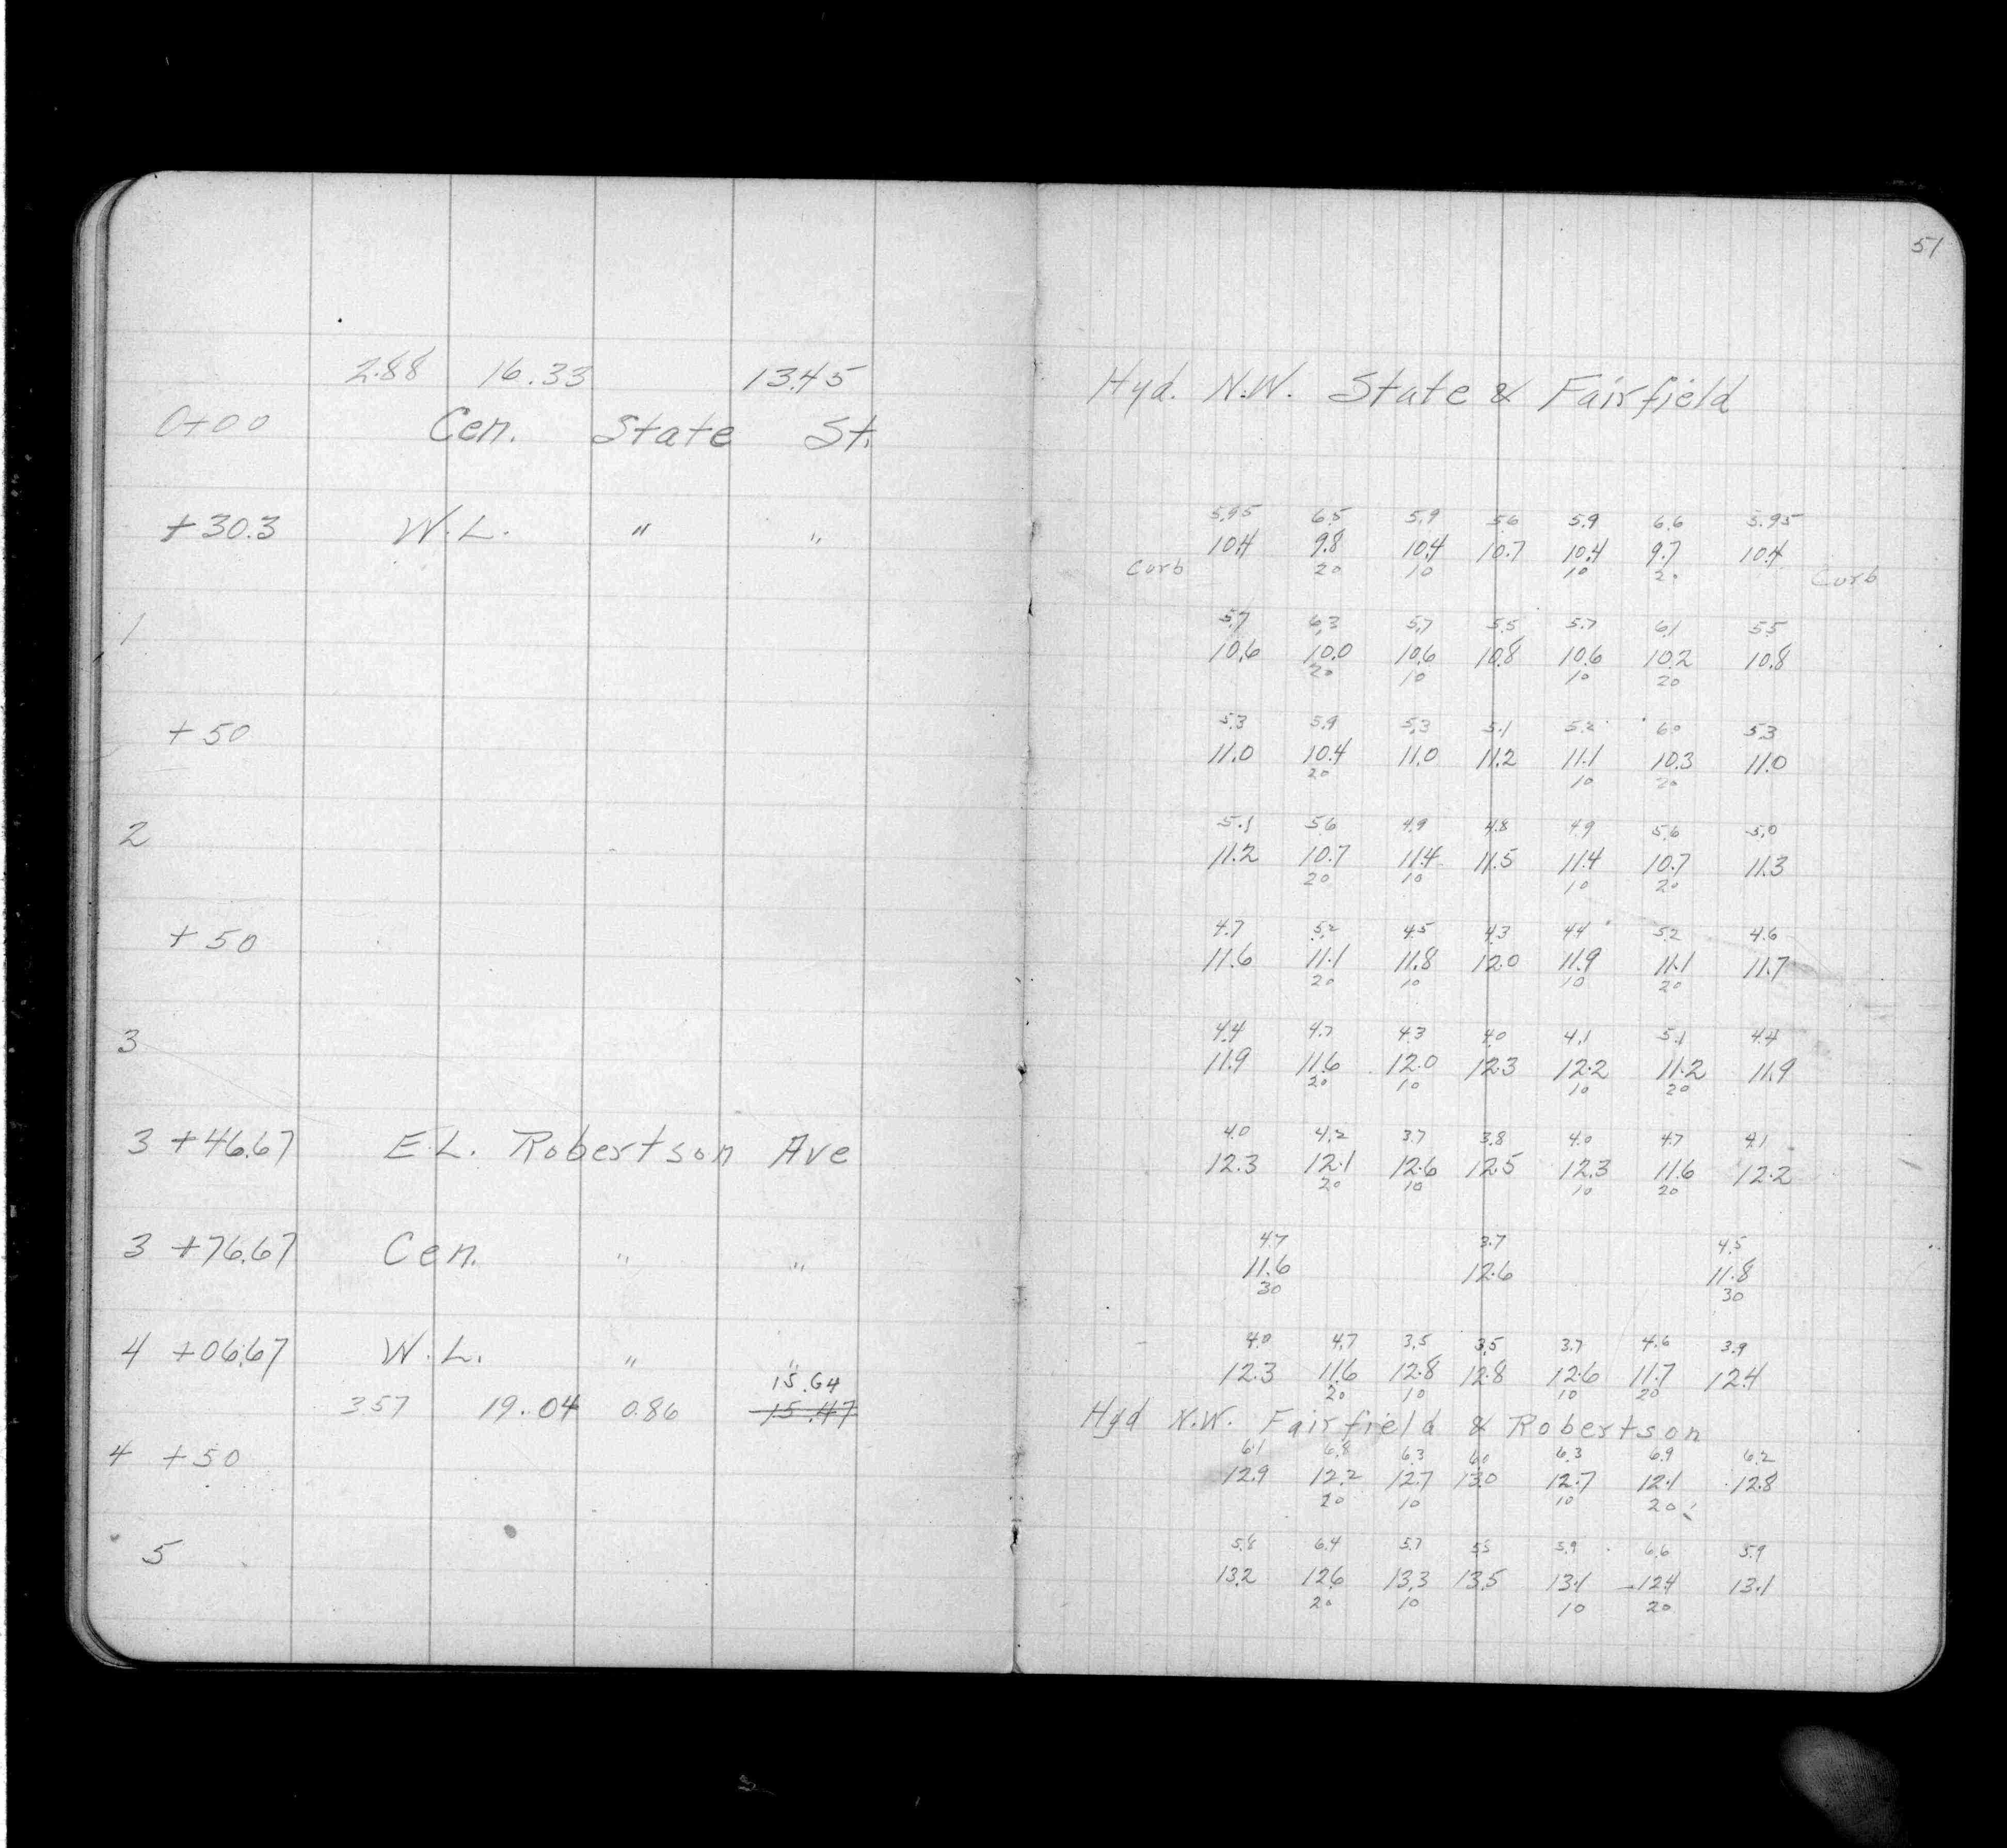 51
2.88 16.33 13.45 Hyd. N.W. State & Fairfield
0+00 Cen. State St.
5.95 6.5 5.9 5.6 5.9 6.6 5.95
+30.3 W.L. " " 10.4 9.8 10.4 10.7 10.4 9.7 10.4
Curb 20 10 10 20 Curb
5.7 6.3 5.7 5.5 5.7 6.1 5.5
1 10.6 10.0 10.6 10.8 10.6 10.2 10.8
20 10 10 20
5.3 5.9 5.3 5.1 5.2 6.0 5.3
+50 11.0 10.4 11.0 11.2 11.1 10.3 11.0
20 10 20
5.1 5.6 4.9 4.8 4.9 5.6 5.0
2 11.2 10.7 11.4 11.5 11.4 10.7 11.3
20 10 10 20
4.7 5.2 4.5 4.3 4.4 5.2 4.6
+50 11.6 11.1 11.8 12.0 11.9 11.1 11.7
20 10 10 20
4.4 4.7 4.3 4.0 4.1 5.1 4.4
3 11.9 11.6 12.0 12.3 12.2 11.2 11.9
20 10 10 20
4.0 4.2 3.7 3.8 4.0 4.7 4.1
3 +46.67 E.L. Robertson Ave 12.3 12.1 12.6 12.5 12.3 11.6 12.2
20 10 10 20
4.7 3.7 4.5
3 +76.67 Cen. " " 11.6 12.6 11.8
30 30
4.0 4.7 3.5 3.5 3.7 4.6 3.9
4 +06.67 W.L. " " 12.3 11.6 12.8 12.8 12.6 11.7 12.4
15.64 20 10 10 20
3.57 19.04 0.86 15.47 Hyd N.W. Fairfield & Robertson
6.1 6.8 6.3 6.0 6.3 6.9 6.2
4 +50 12.9 12.2 12.7 13.0 12.7 12.1 12.8
20 10 10 20
5.8 6.4 5.7 5.5 5.9 6.6 5.9
5 13.2 12.6 13.3 13.5 13.1 12.4 13.1
20 10 10 20